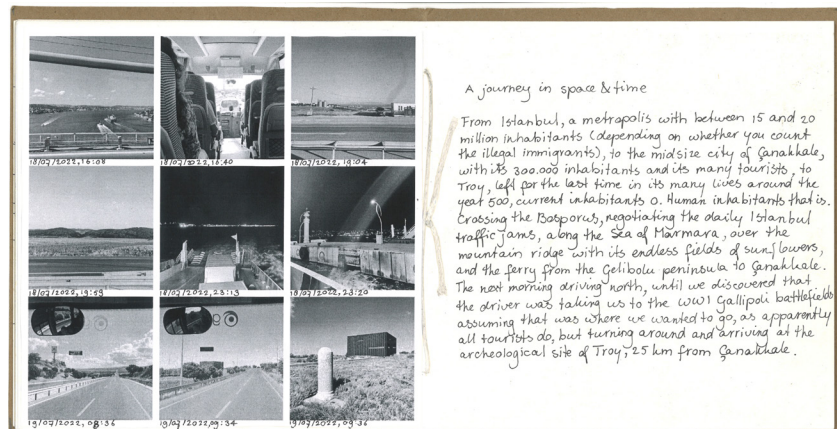 18/07/2022, 16:08
18/07/2022, 16:40
18/07/2022, 19:04
18/07/2022, 19:59
18/07/2022, 23:13
18/07/2022, 23:20
19/07/2022, 08:36
19/07/2022, 09:34
19/07/2022, 09:36
A journey in space & time
From Istanbul, a metropolis with between 15 and 20
million inhabitants (depending on whether you count
the illegal immigrants), to the midsize city of Çanakkale,
with its 300.000 inhabitants and its many tourists, to
Troy, left for the last time in its many lives around the
year 500, current inhabitants 0. Human inhabitants that is.
Crossing the Bosporus, negotiating the daily Istanbul
traffic jams, along the Sea of Marmara, over the
mountain ridge with its endless fields of sunflowers,
and the ferry from the Gelibolu peninsula to Çanakkale.
The next morning driving north, until we discovered that
the driver was taking us to the WW1 Gallipoli battlefields
assuming that was where we wanted to go, as apparently
all tourists do, but turning around and arriving at the
archeological site of Troy, 25 km from Çanakkale.